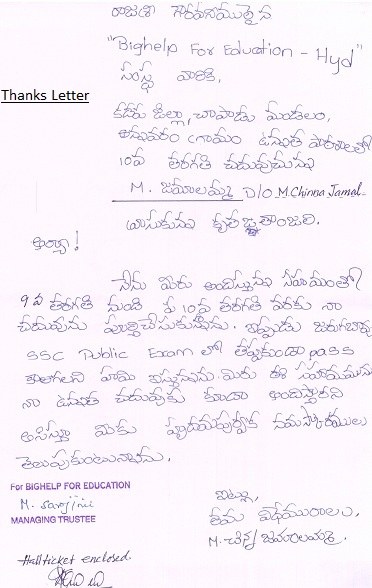 రాజశ్రీ గౌరవనీయులైన
"Bighelp For Education - Hyd"
సంస్థ వారికి,
Thanks Letter
కడప జిల్లా, చాపాడు మండలం,
గ్రామం ఉన్నత పాఠశాలలో
10వ తరగతి చదువుచున్న
M. జమాలమ్మ D/O M.Chinna Jamal
వ్రాసుకున్న కృతజ్ఞతాంజలి.
అయ్యా!
నేను మీరు అందిస్తున్న సహాయంతో
9వ తరగతి నుండి 10వ తరగతి వరకు నా
చదువును పూర్తిచేసుకున్నాను. ఇప్పుడు జరుగబోవు
SSC Public Exam లో తప్పకుండా pass
కాగలనని హామీ ఇస్తున్నాను మీరు ఈ సహాయమును
నా ఉన్నత చదువుకు కూడా అందిస్తారని
ఆశిస్తూ మీకు హృదయపూర్వక నమస్కారములు
తెలుపుకుంటున్నాను.
For BIGHELP FOR EDUCATION
M. Sarojini
MANAGING TRUSTEE
ఇట్లు,
తమ విధేయురాలు,
M. చిన్న జమాలమ్మ.
Hallticket enclosed.